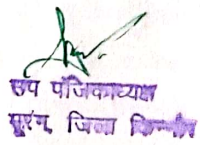 उप पंजिकाध्यक्ष
जिला किन्नौर